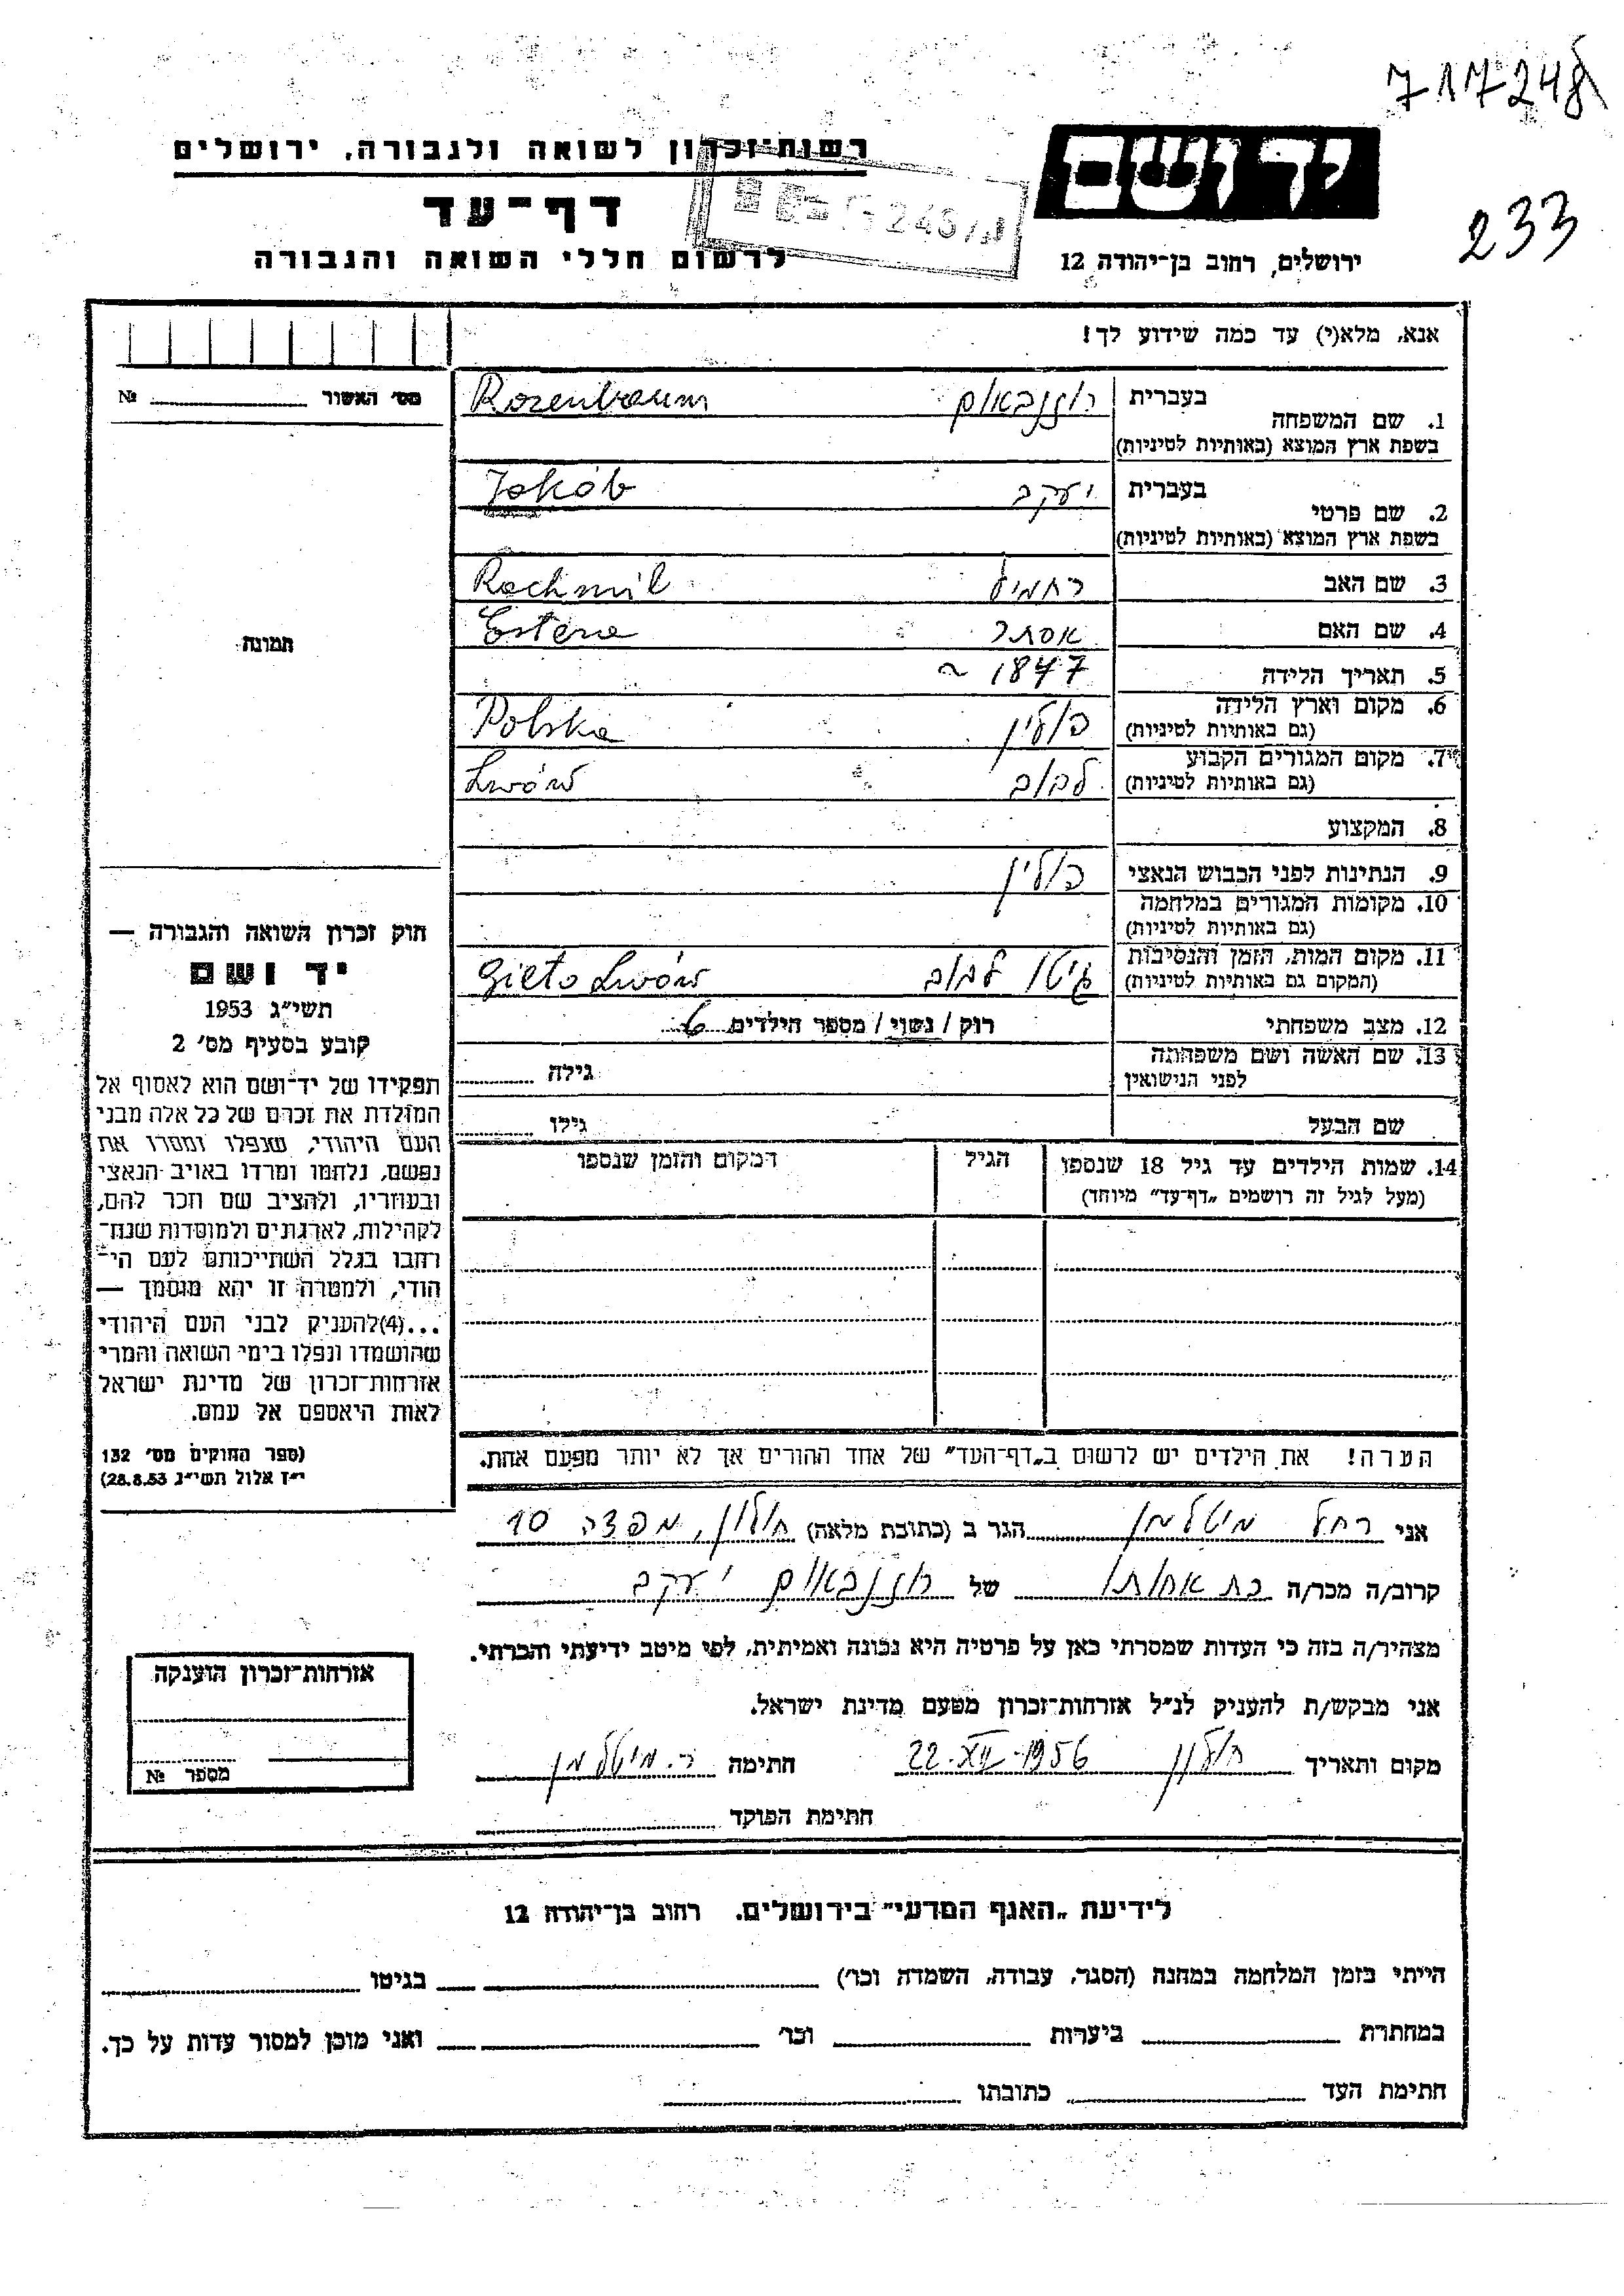 7172481
רשות־זכרון לשואה ולגבורה, ירושלים
יד ושם
דף־עד
233
לרשום חללי השואה והגבורה
ירושלים, רחוב בן־יהודה 12
אנא, מלא(י) עד כמה שידוע לך!
מס׳ האשור № 
1. שם המשפחה בעברית רוזנבאום Rozenbaum
בשפת ארץ המוצא (באותיות לטיניות)
2. שם פרטי בעברית יעקב Jakób
בשפת ארץ המוצא (באותיות לטיניות)
3. שם האב רחמיל Rachmil
4. שם האם אסתר Estera
תמונה
5. תאריך הלידה 1847 ~
6. מקום וארץ הלידה פולין Polska
(גם באותיות לטיניות)
7. מקום המגורים הקבוע לבוב Lwów
(גם באותיות לטיניות)
8. המקצוע
9. הנתינות לפני הכבוש הנאצי פולין
10. מקומות המגורים במלחמה
(גם באותיות לטיניות)
11. מקום המות, הזמן והנסיבות גיטו לבוב Gieto Lwów
(המקום גם באותיות לטיניות)
12. מצב משפחתי רוק / נשוי / מספר הילדים 6
13. שם האשה ושם משפחתה גילה
לפני הנישואין
שם הבעל גילו
14. שמות הילדים עד גיל 18 שנספו הגיל המקום והזמן שנספו
(מעל לגיל זה רושמים „דף־עד” מיוחד)
חוק זכרון השואה והגבורה —
יד ושם
תשי״ג 1953
קובע בסעיף מס׳ 2
תפקידו של יד־ושם הוא לאסוף אל
המולדת את זכרם של כל אלה מבני
העם היהודי, שנפלו ומסרו את
נפשם, נלחמו ומרדו באויב הנאצי
ובעוזריו, ולהציב שם וזכר להם,
לקהילות, לארגונים ולמוסדות שנח־
רחבו בגלל השתייכותם לעם הי־
הודי, ולמטרה זו יהא מוסמך —
...(4)להעניק לבני העם היהודי
שהושמדו ונפלו בימי השואה והמרי
אזרחות־זכרון של מדינת ישראל
לאות היאספם אל עמם.
(ספר החוקים מס׳ 132
י״ז אלול תשי״ג 28.8.53)
הערה! את הילדים יש לרשום ב„דף־העד” של אחד ההורים אך לא יותר מפעם אחת.
אני רחל מיטלמן הגר ב (כתובת מלאה) חולון, מפצה 10
קרוב/ה מכר/ה בת אחותו של רוזנבאום יעקב
מצהיר/ה בזה כי העדות שמסרתי כאן על פרטיה היא נכונה ואמיתית, לפי מיטב ידיעתי והכרתי.
אני מבקש/ת להעניק לנ״ל אזרחות־זכרון מטעם מדינת ישראל.
מקום ותאריך חולון 22.XII.1956 חתימה ר. מיטלמן
חתימת הפוקד
אזרחות־זכרון הוענקה
מספר №
לידיעת „האגף המדעי” בירושלים. רחוב בן־יהודה 12
הייתי בזמן המלחמה במחנה (הסגר, עבודה, השמדה וכו׳) בגיטו
במחתרת ביערות וכו׳ ואני מוכן למסור עדות על כך.
חתימת העד כתובתו